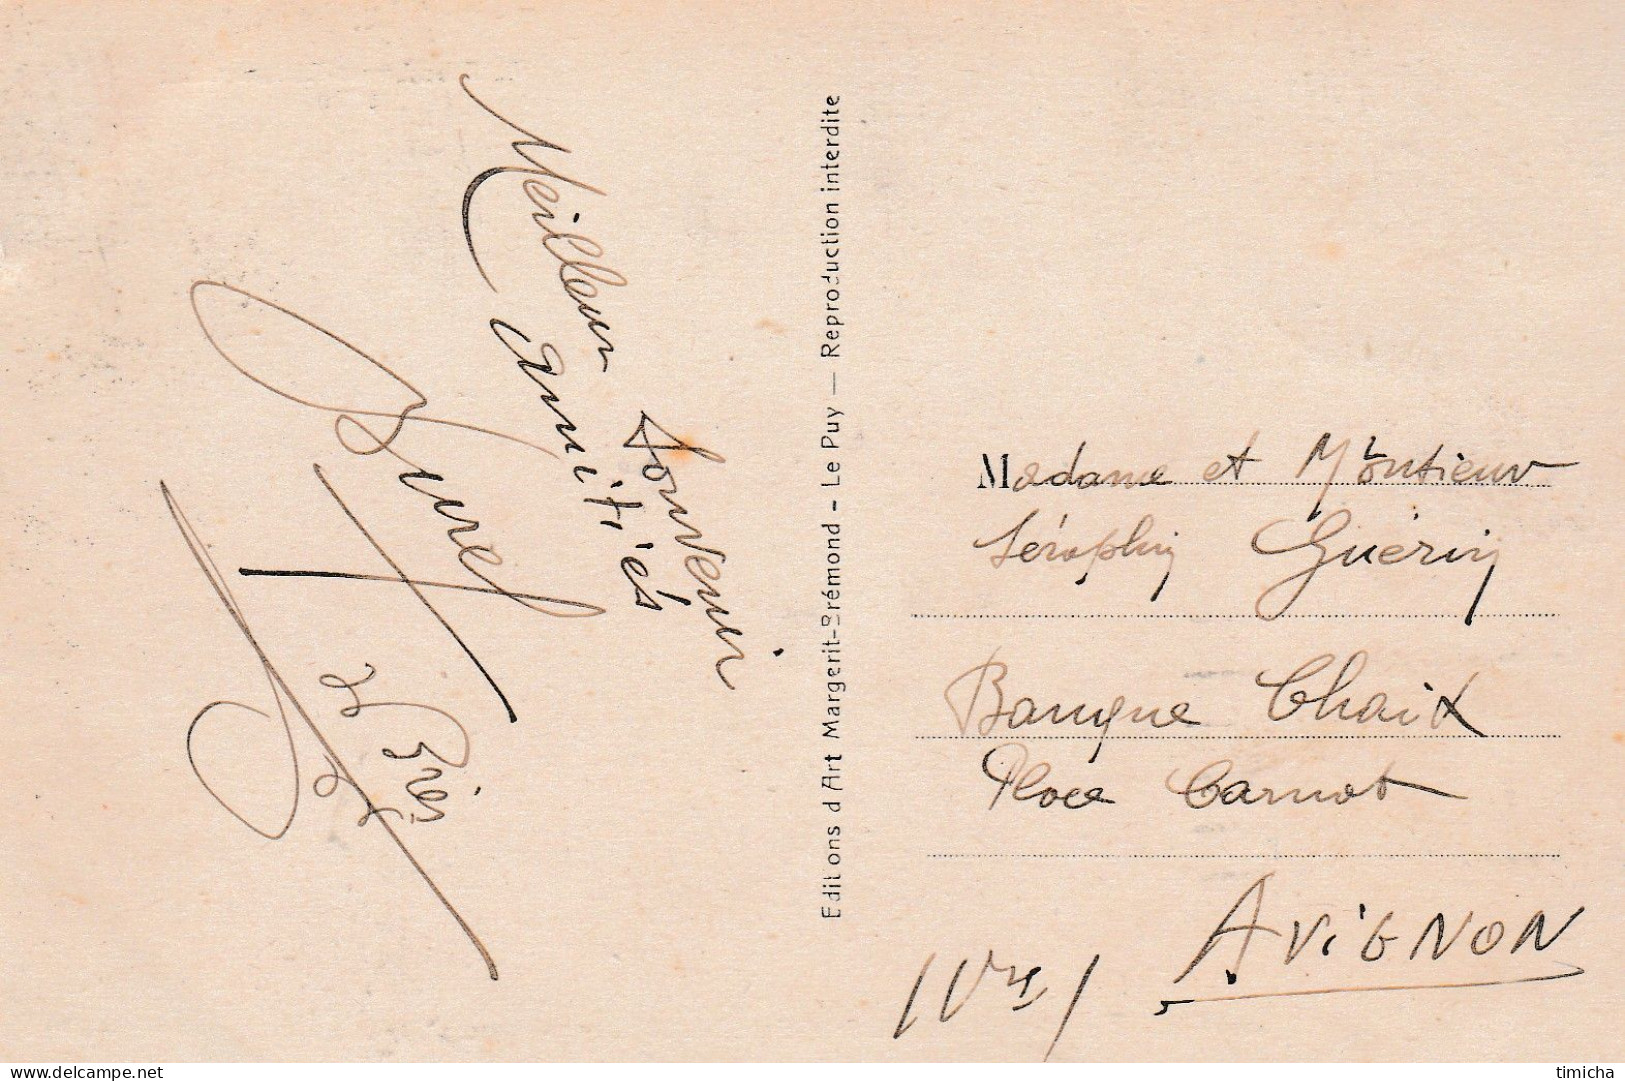 Meilleur Souvenir
Amitiés
Burel
Editions d'Art Margerit-Brémond - Le Puy — Reproduction interdite
Madame et Monsieur
Séraphin Guérin
Banque Chaix
Place Carnot
AVIGNON
(Vse)
delcampe.net
timicha